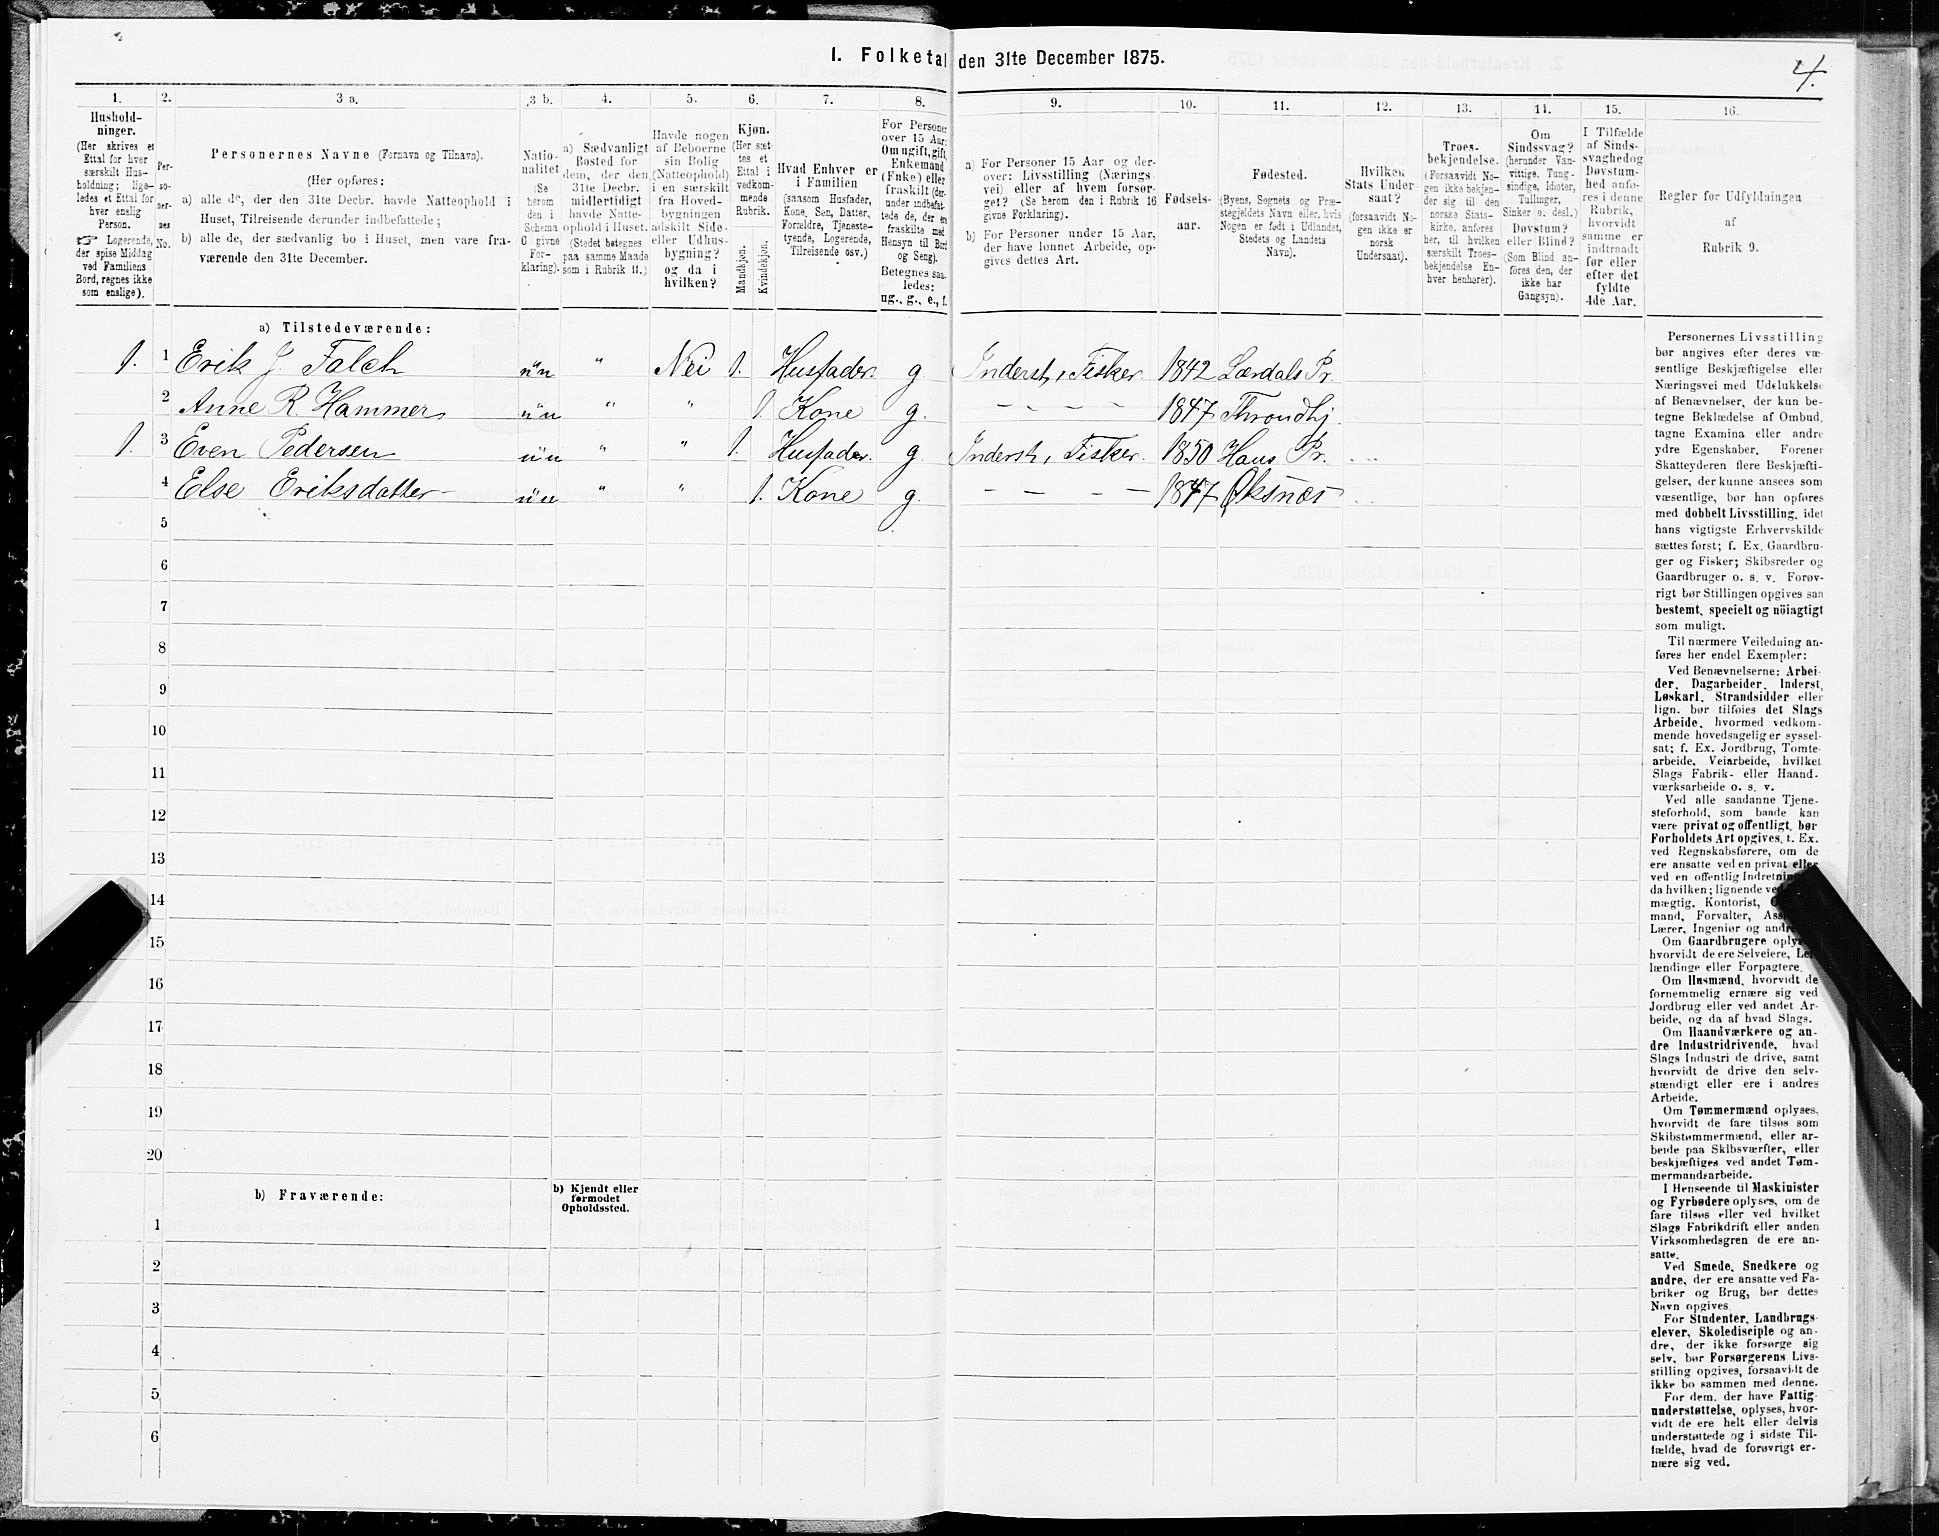 I. Folketal den 31te December 1875.
4.
1.
Hushold-
ninger.
(Her skrives et
Ettal for hver
særskilt Hus-
holdning; lige-
ledes et Ettal for
hver enslig
Person.
☞ Logerende,
der spise Middag
ved Familiens
Bord, regnes ikke
som enslige).
2.
Per-
so-
ner-
nes
No.
3 a.
Personernes Navne (Fornavn og Tilnavn).
(Her opføres:
a) alle de, der den 31te Decbr. havde Natteophold i
Huset, Tilreisende derunder indbefattede;
b) alle de, der sædvanlig bo i Huset, men vare fra-
værende den 31te December.
3 b.
Natio-
nalitet
(Se
herom
den i
Schema
C givne
For-
klaring).
4.
a) Sædvanligt
Bosted for
dem, der den
31te Decbr.
midlertidigt
havde Natte-
ophold i Huset.
(Stedet betegnes
paa samme Maade
som i Rubrik 11.)
5.
Havde nogen
af Beboerne
sin Bolig
(Natteophold)
i en særskilt
fra Hoved-
bygningen
adskilt Side-
eller Udhus-
bygning?
og da i
hvilken?
6.
Kjøn.
(Her sæt-
tes et
Ettal i
vedkom-
mende
Rubrik.
Mandkjøn.
Kvindekjøn.
7.
Hvad Enhver er
i Familien
(saasom Husfader,
Kone, Søn, Datter,
Forældre, Tjeneste-
tyende, Logerende,
Tilreisende osv.)
8.
For Personer
over 15 Aar:
Om ugift, gift,
Enkemand
(Enke) eller
fraskilt (der-
under indbefat-
tede de, der er
fraskilte med
Hensyn til Bord
og Seng).
Betegnes saa-
ledes:
ug., g., e., f.
9.
a) For Personer 15 Aar og der-
over: Livsstilling (Nærings-
vei) eller af hvem forsør-
get? (Se herom den i Rubrik 16
givne Forklaring).
b) For Personer under 15 Aar,
der have lønnet Arbeide, op-
gives dettes Art.
10.
Fødsels-
aar.
11.
Fødested.
(Byens, Sognets og Præ-
stegjeldets Navn eller, hvis
Nogen er født i Udlandet,
Stedets og Landets
Navn).
12.
Hvilken
Stats Under-
saat?
(forsaavidt No-
gen ikke er
norsk
Undersaat).
13.
Troes-
bekjendelse.
(Forsaavidt No-
gen ikke bekjen-
der sig til den
norske Stats-
kirke, anføres
her, til hvilken
særskilt Troes-
bekjendelse En-
hver henhører).
14.
Om
Sindssvag?
(herunder Van-
vittige, Tung-
sindige, Idioter,
Tullinger,
Sinker o. desl.)
Døvstum?
eller Blind?
(Som Blind an-
føres den, der
ikke har
Gangsyn).
15.
I Tilfælde
af Sinds-
svaghed og
Døvstum-
hed anfø-
res i denne
Rubrik,
hvorvidt
samme er
indtraadt
før eller
efter det
fyldte
4de Aar.
16.
Regler for Udfyldningen
af
Rubrik 9.
a) Tilstedeværende:
1. 1 Erik J. Falch n " Nei 1. Husfader. g. Inderst, Fisker. 1842 Lærdals Pr.
2 Anne R. Hammer n " " 1. Kone g. - - - - 1847 Throndhj.
1. 3 Even Pedersen n " " 1. Husfader. g. Inderst, Fisker. 1850 Haus Pr.
4 Else Eriksdatter n " " 1. Kone g. - - - - 1847 Øksnæs
5
6
7
8
9
10
11
12
13
14
15
16
17
18
19
20
b) Fraværende:
b) Kjendt eller
formodet
Opholdssted.
1
2
3
4
5
6
Personernes Livsstilling
bør angives efter deres væ-
sentlige Beskjæftigelse eller
Næringsvei med Udelukkelse
af Benævnelser, der kun be-
tegne Beklædelse af Ombud,
tagne Examina eller andre
ydre Egenskaber. Forener
Skatteyderen flere Beskjæfti-
gelser, der kunne ansees som
væsentlige, bør han opføres
med dobbelt Livsstilling, idet
hans vigtigste Erhvervskilde
sættes først; f. Ex. Gaardbru-
ger og Fisker; Skibsreder og
Gaardbruger o. s. v. Forøv-
rigt bør Stillingen opgives saa
bestemt, specielt og nöiagtigt
som muligt.
Til nærmere Veiledning an-
føres her endel Exempler:
Ved Benævnelserne: Arbei-
der, Dagarbeider, Inderst,
Løskarl, Strandsidder eller
lign. bør tilføies det Slags
Arbeide, hvormed vedkom-
mende hovedsagelig er syssel-
sat; f. Ex. Jordbrug, Tomte-
arbeide, Veiarbeide, hvilket
Slags Fabrik- eller Haand-
værksarbeide o. s. v.
Ved alle saadanne Tjene-
steforhold, som baade kan
være privat og offentligt, bør
Forholdets Art opgives, t. Ex.
ved Regnskabsførere, om de
ere ansatte ved en privat eller
ved en offentlig Indretning
da hvilken; lignende ved
mægtig, Kontorist,
mand, Forvalter,
Lærer, Ingeniør og andre
Om Gaardbrugere oplyses,
hvorvidt de ere Selveiere, Lei-
lændinge eller Forpagtere.
Om Husmænd, hvorvidt de
fornemmelig ernære sig ved
Jordbrug eller ved andet Ar-
beide, og da af hvad Slags.
Om Haandværkere og an-
dre Industridrivende, hvad
Slags Industri de drive, samt
hvorvidt de drive den selv-
stændigt eller ere i andres
Arbeide.
Om Tømmermænd oplyses,
hvorvidt de fare tilsøs som
Skibstømmermænd, eller ar-
beide paa Skibsværfter, eller
beskjæftiges ved andet Tøm-
mermandsarbeide.
I Henseende til Maskinister
og Fyrbødere oplyses, om de
fare tilsøs eller ved hvilket
Slags Fabrikdrift eller anden
Virksomhedsgren de ere an-
satte.
Ved Smede, Snedkere og
andre, der ere ansatte ved Fa-
briker og Brug, bør dettes
Navn opgives.
For Studenter, Landbrugs-
elever, Skoledisciple og an-
dre, der ikke forsørge sig
selv, bør Forsørgerens Livs-
stilling opgives, forsaavidt de
ikke bo sammen med denne.
For dem, der have Fattig-
understøttelse, oplyses, hvor-
vidt de ere helt eller delvis
understøttede og i sidste Til-
fælde, hvad de forøvrigt er-
nære sig ved.